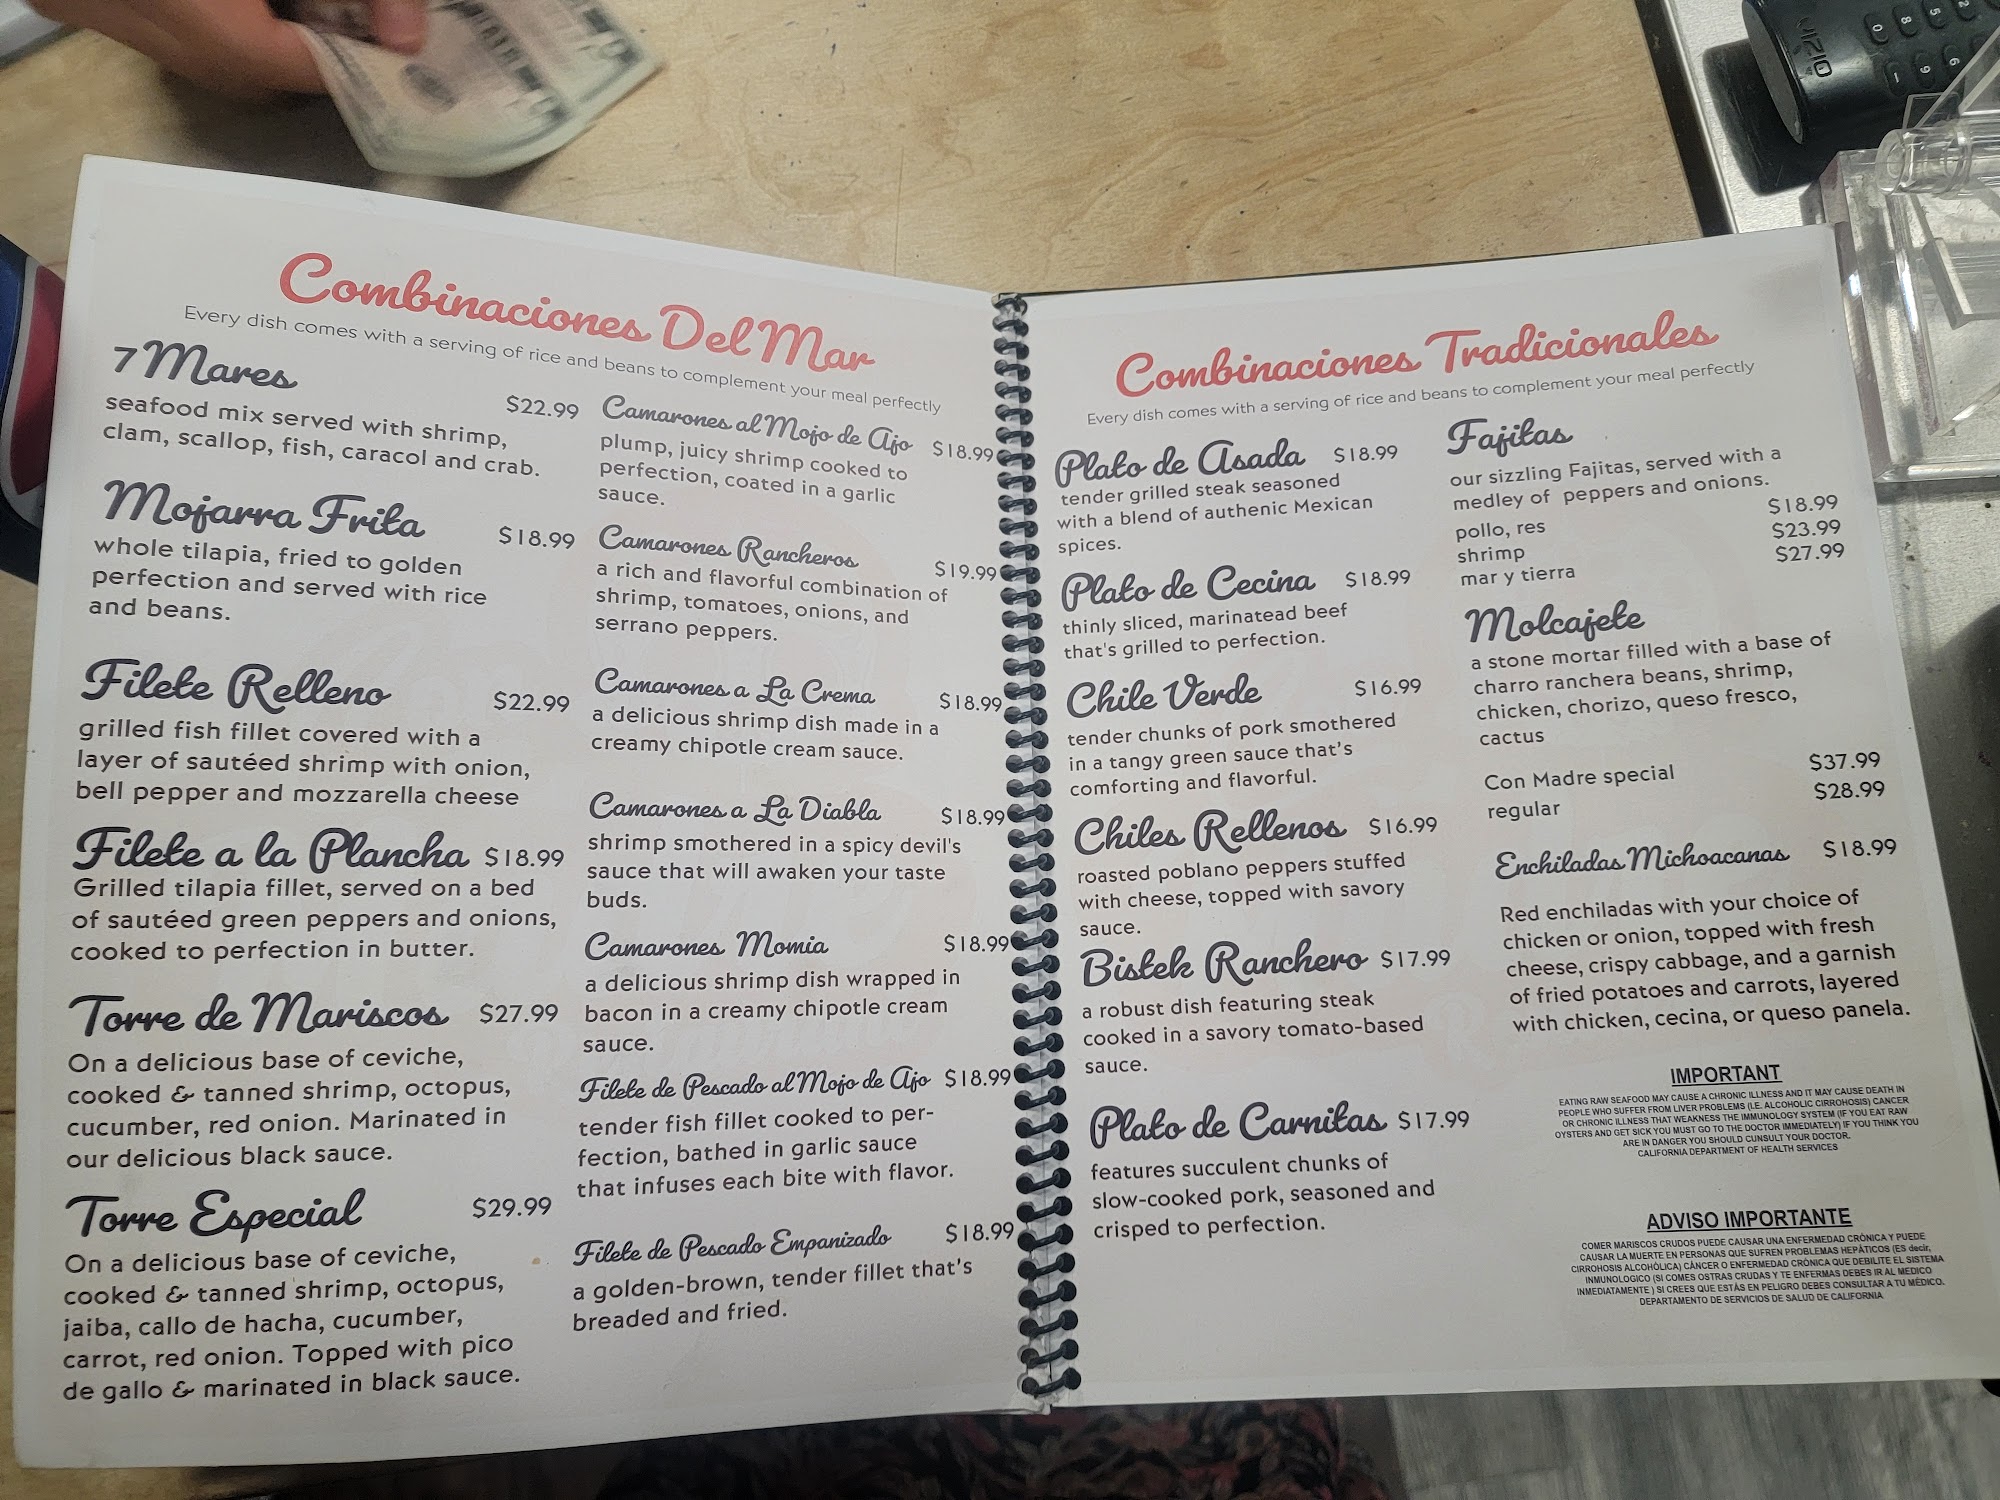 Combinaciones Del Mar
Every dish comes with a serving of rice and beans to complement your meal perfectly
7 Mares
$22.99
seafood mix served with shrimp,
clam, scallop, fish, caracol and crab.
Mojarra Frita
$18.99
whole tilapia, fried to golden
perfection and served with rice
and beans.
Filete Relleno
$22.99
grilled fish fillet covered with a
layer of sautéed shrimp with onion,
bell pepper and mozzarella cheese
Filete a la Plancha $18.99
Grilled tilapia fillet, served on a bed
of sautéed green peppers and onions,
cooked to perfection in butter.
Torre de Mariscos $27.99
On a delicious base of ceviche,
cooked & tanned shrimp, octopus,
cucumber, red onion. Marinated in
our delicious black sauce.
Torre Especial $29.99
On a delicious base of ceviche,
cooked & tanned shrimp, octopus,
jaiba, callo de hacha, cucumber,
carrot, red onion. Topped with pico
de gallo & marinated in black sauce.
Camarones al Mojo de Ajo $18.99
plump, juicy shrimp cooked to
perfection, coated in a garlic
sauce.
Camarones Rancheros $19.99
a rich and flavorful combination of
shrimp, tomatoes, onions, and
serrano peppers.
Camarones a La Crema $18.99
a delicious shrimp dish made in a
creamy chipotle cream sauce.
Camarones a La Diabla $18.99
shrimp smothered in a spicy devil's
sauce that will awaken your taste
buds.
Camarones Momia $18.99
a delicious shrimp dish wrapped in
bacon in a creamy chipotle cream
sauce.
Filete de Pescado al Mojo de Ajo $18.99
tender fish fillet cooked to per-
fection, bathed in garlic sauce
that infuses each bite with flavor.
Filete de Pescado Empanizado $18.99
a golden-brown, tender fillet that's
breaded and fried.
Combinaciones Tradicionales
Every dish comes with a serving of rice and beans to complement your meal perfectly
Plato de Asada $18.99
tender grilled steak seasoned
with a blend of authenic Mexican
spices.
Plato de Cecina $18.99
thinly sliced, marinatead beef
that's grilled to perfection.
Chile Verde $16.99
tender chunks of pork smothered
in a tangy green sauce that's
comforting and flavorful.
Chiles Rellenos $16.99
roasted poblano peppers stuffed
with cheese, topped with savory
sauce.
Bistek Ranchero $17.99
a robust dish featuring steak
cooked in a savory tomato-based
sauce.
Plato de Carnitas $17.99
features succulent chunks of
slow-cooked pork, seasoned and
crisped to perfection.
Fajitas
our sizzling Fajitas, served with a
medley of peppers and onions.
pollo, res $18.99
shrimp $23.99
mar y tierra $27.99
Molcajete
a stone mortar filled with a base of
charro ranchera beans, shrimp,
chicken, chorizo, queso fresco,
cactus
Con Madre special $37.99
regular $28.99
Enchiladas Michoacanas $18.99
Red enchiladas with your choice of
chicken or onion, topped with fresh
cheese, crispy cabbage, and a garnish
of fried potatoes and carrots, layered
with chicken, cecina, or queso panela.
IMPORTANT
EATING RAW SEAFOOD MAY CAUSE A CHRONIC ILLNESS AND IT MAY CAUSE DEATH IN
PEOPLE WHO SUFFER FROM LIVER PROBLEMS (I.E. ALCOHOLIC CIRROHOSIS) CANCER
OR CHRONIC ILLNESS THAT WEAKNESS THE IMMUNOLOGY SYSTEM (IF YOU EAT RAW
OYSTERS AND GET SICK YOU MUST GO TO THE DOCTOR IMMEDIATELY) IF YOU THINK YOU
ARE IN DANGER YOU SHOULD CUNSULT YOUR DOCTOR.
CALIFORNIA DEPARTMENT OF HEALTH SERVICES
ADVISO IMPORTANTE
COMER MARISCOS CRUDOS PUEDE CAUSAR UNA ENFERMEDAD CRÓNICA Y PUEDE
CAUSAR LA MUERTE EN PERSONAS QUE SUFREN PROBLEMAS HEPÁTICOS (ES decir,
CIRROHOSIS ALCOHÓLICA) CÁNCER O ENFERMEDAD CRÓNICA QUE DEBILITE EL SISTEMA
INMUNOLOGICO (SI COMES OSTRAS CRUDAS Y TE ENFERMAS DEBES IR AL MEDICO
INMEDIATAMENTE ) SI CREES QUE ESTÁS EN PELIGRO DEBES CONSULTAR A TU MÉDICO.
DEPARTAMENTO DE SERVICIOS DE SALUD DE CALIFORNIA
VIZIO